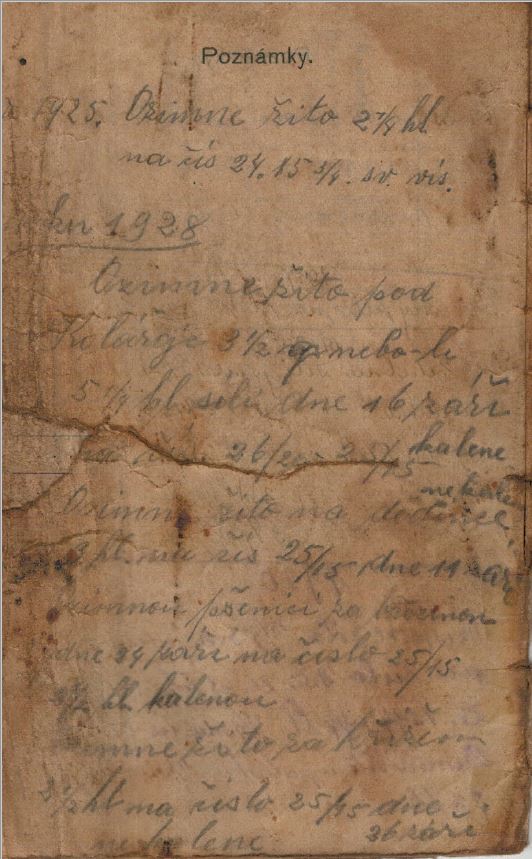 Poznámky.
1925. Ozimne žito 2 1/4 hl
na čís 24. 15 3/4. sv. vis.
1928
Ozimne žito pod
Kolářje 3 1/2 q nebo-li
5 1/4 hl sílu dne 16 září
26/ 25/15 kalene
Ozimne žito na
3 hl na čís 25/15 dne 11 září
Ozimnou pšenici za
dne 24 září na číslo 25/15
2 1/2 hl kalenou
žito za křížem
2 1/2 hl na číslo 25/15 dne
nekalene 26 září